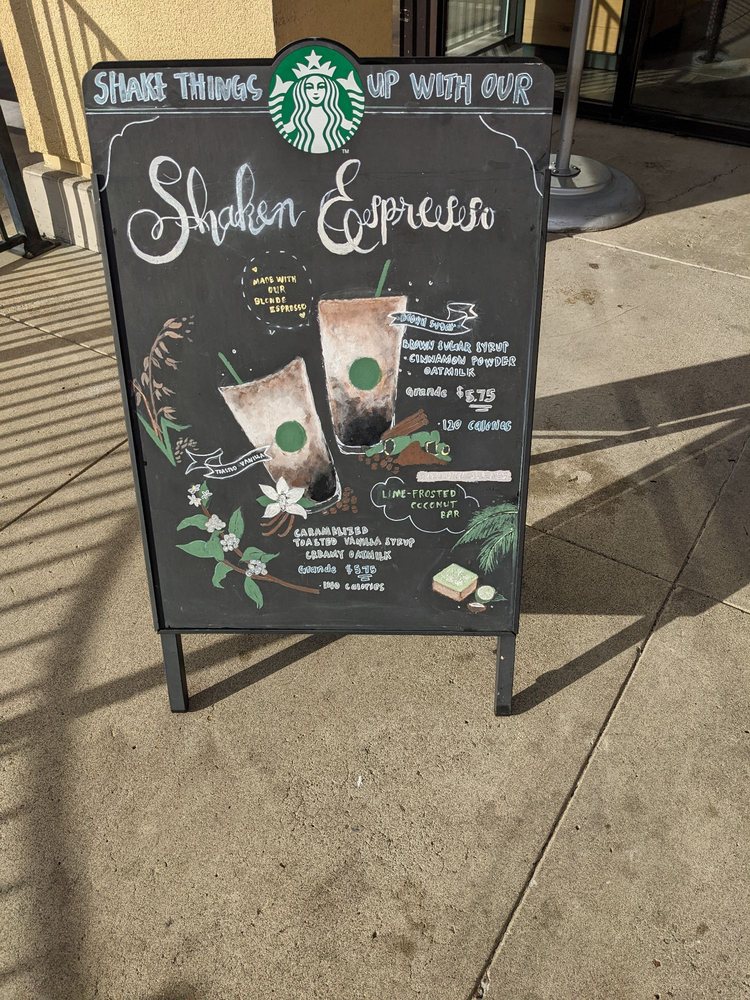 SHAKE THINGS UP WITH OUR
TM
Shaken Espresso
MADE WITH
OUR
BLONDE
ESPRESSO
BROWN SUGAR
BROWN SUGAR SYRUP
· CINNAMON POWDER
OATMILK
Grande $5.75
· 120 calories
TOASTED VANILLA
LIME-FROSTED
COCONUT
BAR
CARAMELIZED
TOASTED VANILLA SYRUP
CREAMY OATMILK
Grande $5.75
calories